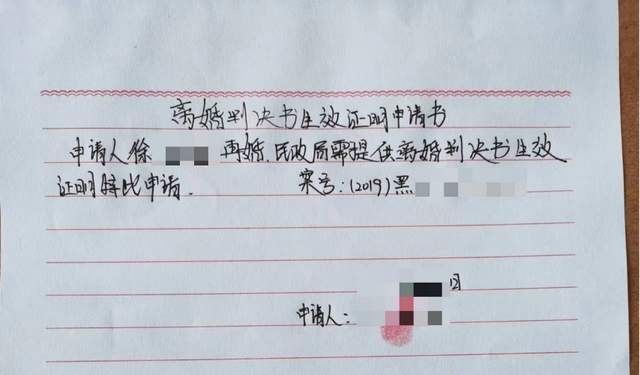 离婚判决书生效证明申请书
申请人徐 再婚,民政局需提供离婚判决书生效
证明特此申请. 案号:(2019)黑
日
申请人: